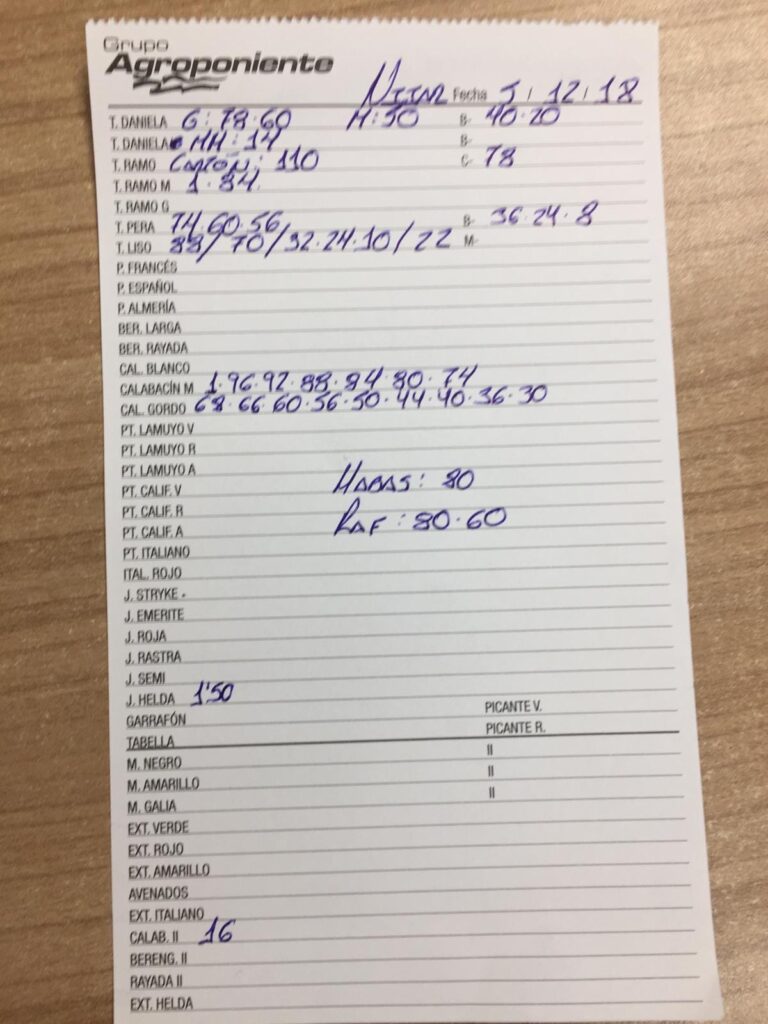 Grupo
Agroponiente
NIJAR Fecha 5 / 12 / 18
T. DANELA G: 78·60 M: 50 B- 40·20
T. DANELA MM: 14 B-
T. RAMO CARTÓN: 110 C- 78
T. RAMO M 1·84
T. RAMO G
T. PERA 74·60·56 B- 36·24·8
T. LISO 88/ 70/32·24·10/22 M-
P. FRANCÉS
P. ESPAÑOL
P. ALMERÍA
BER. LARGA
BER. RAYADA
CAL. BLANCO
CALABACÍN M 1·96·92·88·84·80·74
CAL. GORDO 68·66·60·56·50·44·40·36·30
PT. LAMUYO V
PT. LAMUYO R
PT. LAMUYO A
PT. CALIF. V HABAS: 80
PT. CALIF. R RAF: 80·60
PT. CALIF. A
PT. ITALIANO
ITAL. ROJO
J. STRYKE
J. EMERITE
J. ROJA
J. RASTRA
J. SEMI
J. HELDA 1'50
GARRAFÓN PICANTE V.
TABELLA PICANTE R.
M. NEGRO II
M. AMARILLO II
M. GALIA II
EXT. VERDE
EXT. ROJO
EXT. AMARILLO
AVENADOS
EXT. ITALIANO
CALAB. II 16
BERENG. II
RAYADA II
EXT. HELDA